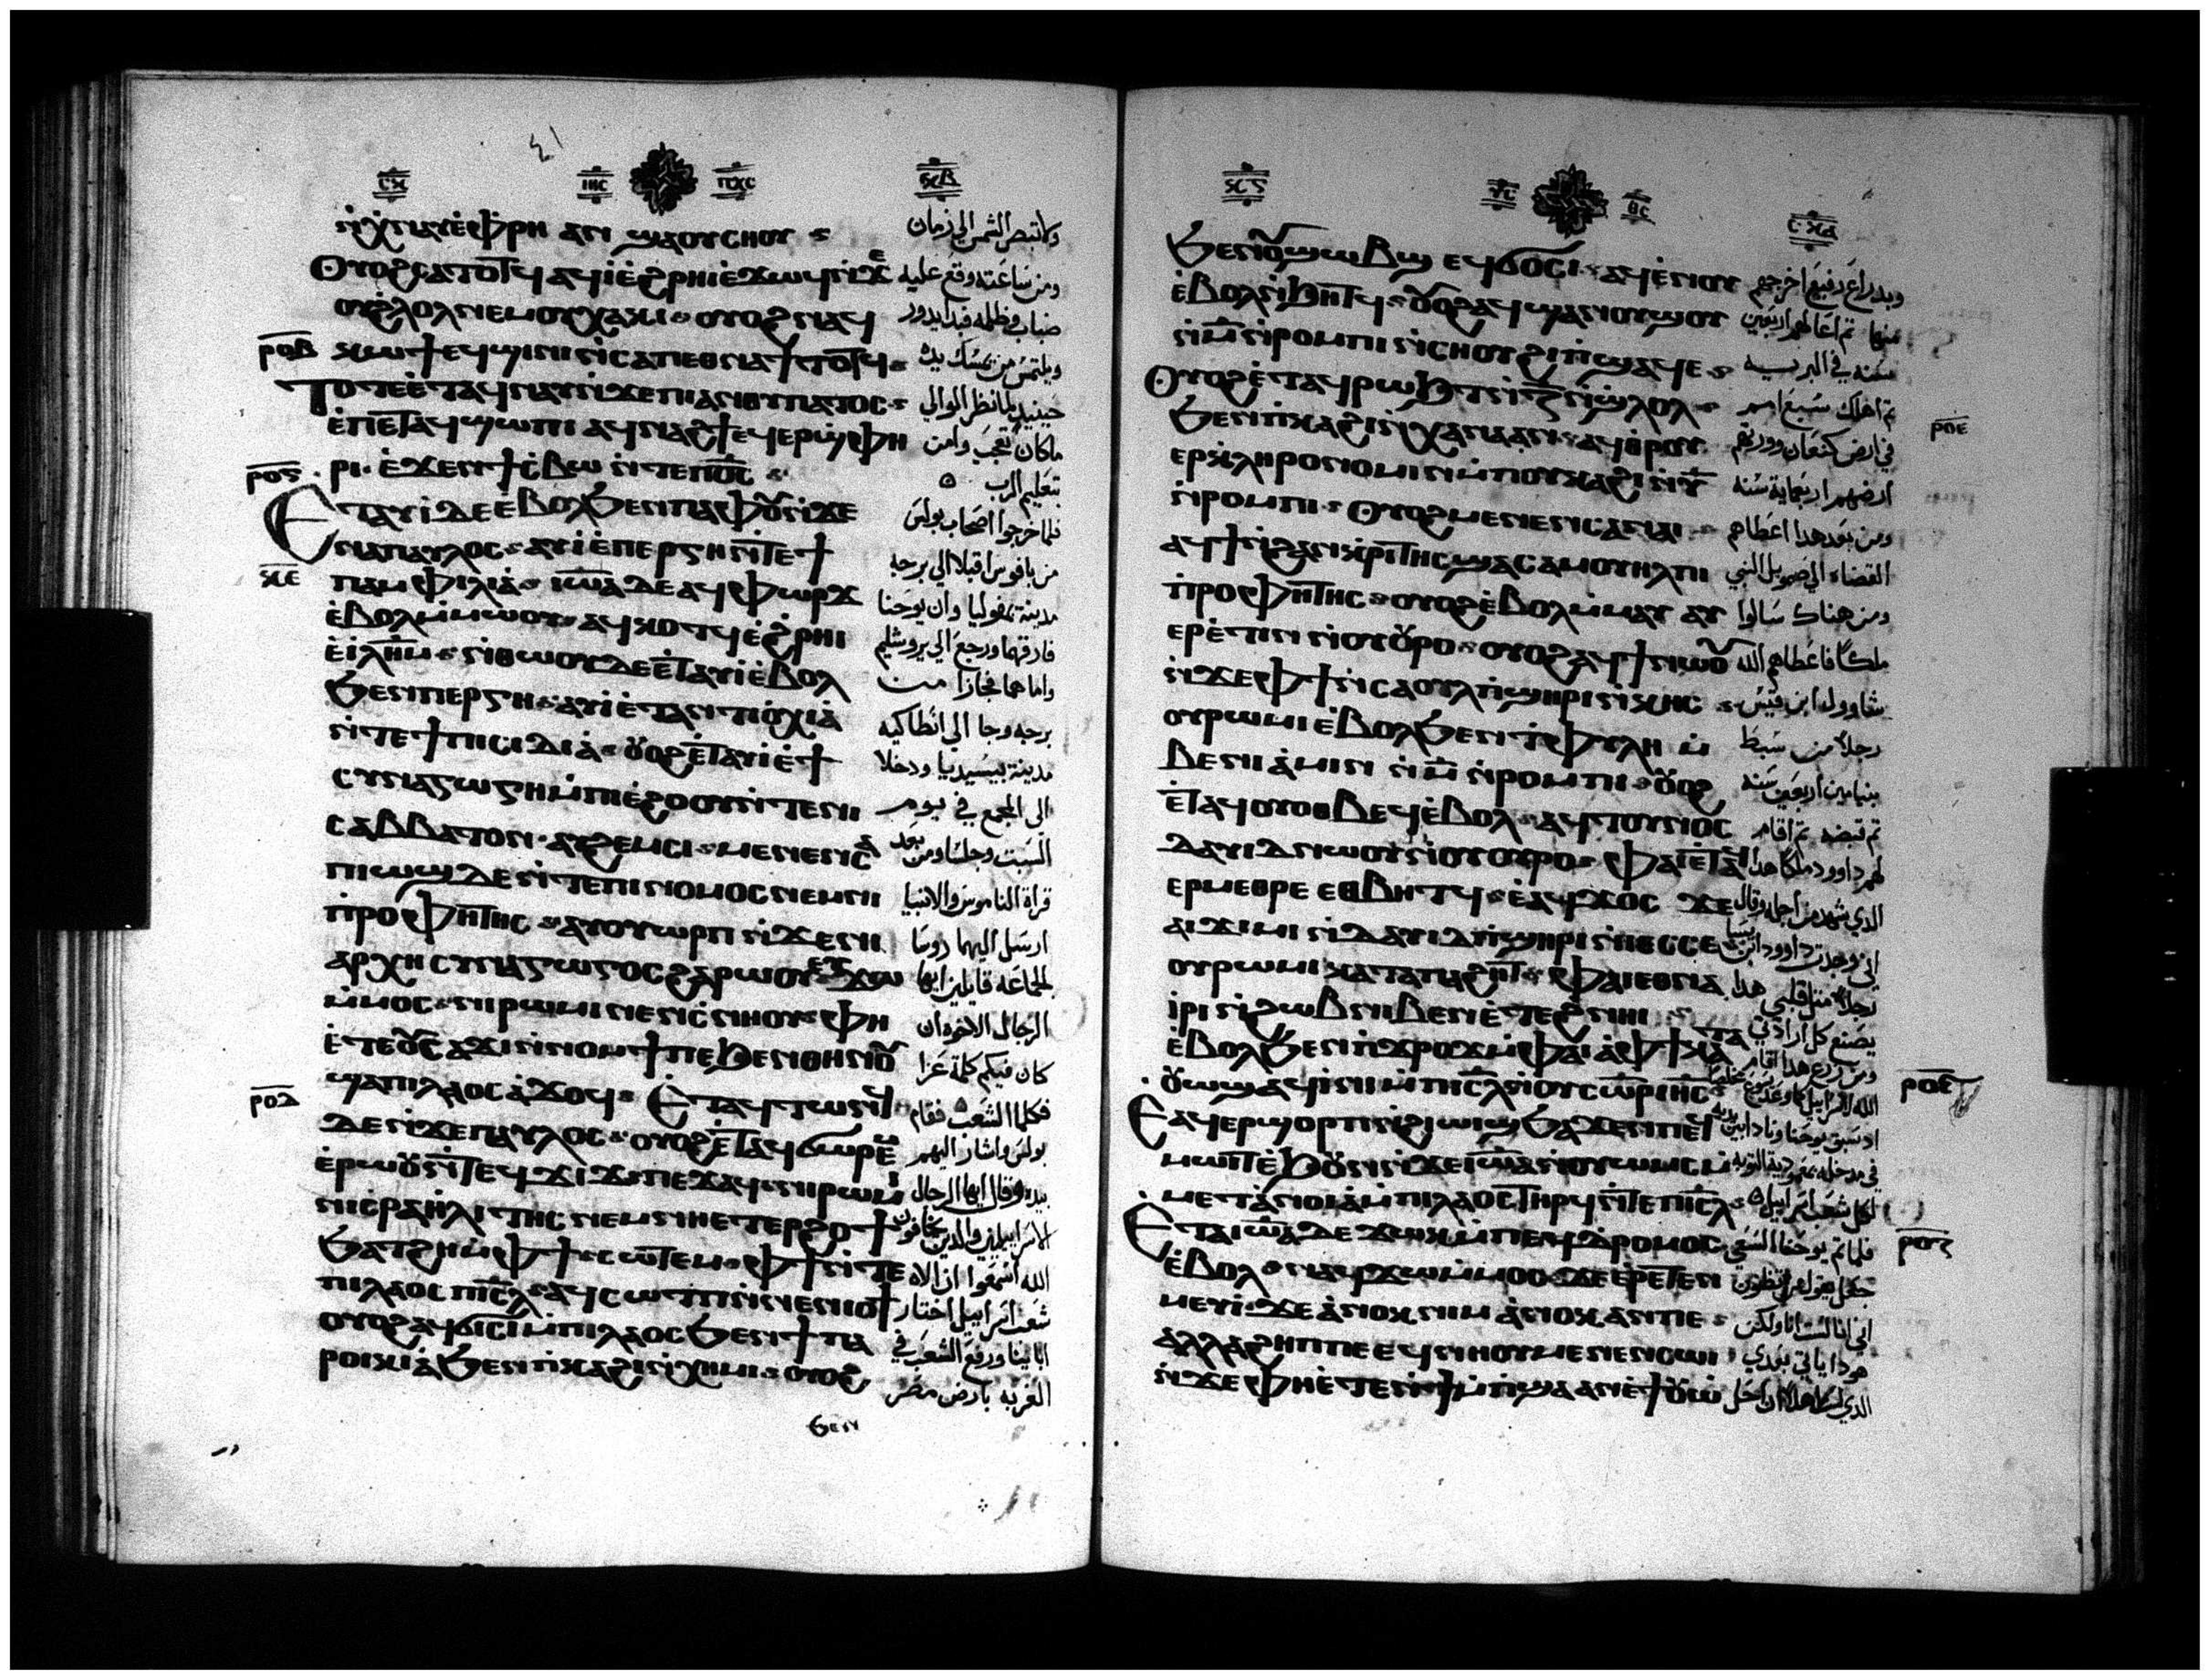 ٤١
ⲓⲏⲥ ⲡⲭⲥ
ⲛ̀ⲭⲛⲁⲩⲉ̀ⲫⲣⲏ ⲁⲛ ϣⲁⲟⲩⲥⲏⲟⲩ
ⲟⲩⲟϩ ⲥⲁⲧⲟⲧϥ ⲁϥⲓ̀ⲉ̀ϩⲣⲏⲓⲉ̀ϫⲱϥⲛ̀ϫⲉ
ⲟⲩϩ̀ⲗⲟⲗ ⲛⲉⲙ ⲟⲩⲭⲁⲕⲓ ⲟⲩⲟϩ ⲛⲁϥ
ⲣⲟⲃ ⲕⲱϯ ⲉϥϣⲓⲛⲓ ⲛ̀ⲥⲁ ⲡⲉⲑⲛⲁϯⲧⲟⲧϥ
ⲧⲟⲧⲉ ⲉ̀ⲧⲁϥⲛⲁⲩ ⲛ̀ϫⲉ ⲡⲓⲁⲛⲑⲩⲡⲁⲧⲟⲥ
ⲉ̀ⲡⲉⲧⲁϥϣⲱⲡⲓ ⲁϥⲛⲁϩϯ ⲉϥⲉⲣϣⲫⲏ
ⲣⲓ ⲉ̀ϫⲉⲛ ϯⲥ̀ⲃⲱ ⲛ̀ⲧⲉ ⲡⲟ̅ⲥ̅
ⲉⲧⲁⲩⲓ̀ ⲇⲉ ⲉ̀ⲃⲟⲗϧⲉⲛ ⲡⲁⲫⲟⲩ ⲛ̀ϫⲉ
ⲛⲁⲡⲁⲩⲗⲟⲥ ⲁⲩⲓ̀ ⲉ̀ⲡⲉⲣⲅⲏ ⲛ̀ⲧⲉ ϯ
ⲡⲁⲙⲫⲓⲗⲓⲁ̀ ⲓⲱ̅ⲁ̅ ⲇⲉ ⲁϥⲫⲱⲣϫ
ⲉ̀ⲃⲟⲗ ⲙ̀ⲙⲱⲟⲩ ⲁϥⲕⲟⲧϥ ⲉ̀ϩ̀ⲣⲏⲓ
ⲉ̀ⲓⲗⲏ̅ⲙ̅ ⲛ̀ⲑⲱⲟⲩ ⲇⲉ ⲉ̀ⲧⲁⲩⲓ̀ ⲉ̀ⲃⲟⲗ
ϧⲉⲛ ⲡⲉⲣⲅⲏ ⲁⲩⲓ̀ ⲉ̀ⲧⲁⲛⲧⲓⲟ̀ⲭⲓⲁ̀
ⲛ̀ⲧⲉ ϯⲡⲓⲥⲓⲇⲓⲁ̀ ⲟⲩⲟϩ ⲉ̀ⲧⲁⲩⲓ̀ ⲉ̀ϯ
ⲥⲩⲛⲁⲅⲱⲅⲏ ⲙ̀ⲡⲓⲉ̀ϩⲟⲟⲩ ⲛ̀ⲧⲉ ⲛⲓ
ⲥⲁⲃⲃⲁⲧⲟⲛ ⲁⲩϩⲉⲙⲥⲓ ⲙⲉⲛⲉⲛⲥⲁ
ⲡⲓⲱϣ ⲇⲉ ⲛ̀ⲧⲉ ⲡⲓⲛⲟⲙⲟⲥ ⲛⲉⲙ ⲛⲓ
ⲡⲣⲟⲫⲏⲧⲏⲥ ⲁⲩⲟⲩⲱⲣⲡ ⲛ̀ϫⲉ ⲛⲓ
ⲁⲣⲭⲏⲥⲩⲛⲁⲅⲱⲅⲟⲥ ϩⲁⲣⲱⲟⲩ ⲉⲩϫⲱ
ⲙ̀ⲙⲟⲥ ⲛⲓⲣⲱⲙⲓ ⲛⲉⲛⲥ̀ⲛⲏⲟⲩ ⲫⲏ
ϣⲁ ⲡⲓⲗⲁⲟⲥ ⲁ̀ϫⲟϥ ⲉⲧⲁϥⲧⲱⲛϥ
ⲣⲟⲇ ⲇⲉ ⲛ̀ϫⲉ ⲡⲁⲩⲗⲟⲥ ⲟⲩⲟϩ ⲉ̀ⲧⲁϥϭⲱⲣⲉⲙ
ⲉ̀ⲣⲱⲟⲩ ⲛ̀ⲧⲉϥϫⲓϫ ⲡⲉϫⲁϥ ⲛⲓⲣⲱⲙⲓ
ⲛⲓⲥⲣⲁⲏ̀ⲗⲓⲧⲏⲥ ⲛⲉⲙ ⲛⲏⲉⲧⲉⲣϩⲟϯ
ϧⲁⲧϩⲏ ⲙ̀ⲫϯ ⲥⲱⲧⲉⲙ ⲫϯ ⲛ̀ⲧⲉ
ⲡⲓⲗⲁⲟⲥ ⲡⲓⲥ̅ⲗ̅ ⲁϥⲥⲱⲧⲡ ⲛ̀ⲛⲉⲛⲓⲟϯ
ⲟⲩⲟϩ ⲁϥϭⲓⲥⲓ ⲙ̀ⲡⲓⲗⲁⲟⲥ ϧⲉⲛ ϯⲡⲁ
ⲣⲟⲓⲕⲓⲁ̀ ϧⲉⲛ ⲡ̀ⲕⲁϩⲓ ⲛ̀ⲭⲏⲙⲓ ⲟⲩⲟϩ
ϧⲉⲛ
ولا تبصر الشمس الي زمان
ومن ساعته وقع عليه
ضباب وظلمه فبدا يدور
ويلتمس من يمسك يده
حينيد لما نظر الوالي
ما كان تعجب وامن
بتعليم الرب
فلما خرجوا اصحاب بولس
من بافوس اقبلا الي برجه
مدينة بمفوليا وان يوحنا
فارقهما ورجع الي يروشليم
واما هما فجازا من
برجه وجا الي انطاكيه
مدينة بيسيديا ودخلا
الى المجمع في يوم
السبت وجلسا ومن بعد
قراة الناموس والانبيا
ارسل اليهما روسا
الجماعه قايلين ايها
الرجال الاخوه ان
كان فيكم كلمة عزا
فكلما الشعب فقام
بولس واشار اليهم
بيده وقال ايها الرجال
الاسراييليين والدين يخافون
الله اسمعوا ان الاه
شعب اسراييل اختار
اباينا ورفع الشعب في
الغربه بارض مصر
ϧⲉⲛ ⲟⲩϣⲱⲃϣ ⲉϥϭⲟⲥⲓ ⲁϥⲉ̀ⲛⲟⲩ
ⲉ̀ⲃⲟⲗ ⲛ̀ϧⲏⲧϥ ⲟⲩⲟϩ ⲁϥϣⲁⲛⲟⲩϣⲟⲩ
ⲛ̀ⲙ̅ ⲛ̀ⲣⲟⲙⲡⲓ ⲛ̀ⲥⲏⲟⲩ ϩⲓ ⲡ̀ϣⲁϥⲉ
ⲟⲩⲟϩ ⲉ̀ⲧⲁϥⲣⲱϧⲧ ⲛ̀ⲍ̅ ⲛ̀ϣⲗⲟⲗ
ϧⲉⲛ ⲡ̀ⲕⲁϩⲓ ⲛ̀ⲭⲁⲛⲁⲁⲛ ⲁϥⲑⲣⲟⲩ
ⲉⲣⲕⲗⲏⲣⲟⲛⲟⲙⲓⲛ ⲙ̀ⲡⲟⲩⲕⲁϩⲓ ⲛ̀ⲩ̅
ⲛ̀ⲣⲟⲙⲡⲓ ⲟⲩⲟϩ ⲙⲉⲛⲉⲛⲥⲁ ⲛⲁⲓ
ⲁϥϯ ⲛ̀ϩⲁⲛⲕⲣⲓⲧⲏⲥ ϣⲁ ⲥⲁⲙⲟⲩⲏⲗ ⲡⲓ
ⲡⲣⲟⲫⲏⲧⲏⲥ ⲟⲩⲟϩ ⲉ̀ⲃⲟⲗ ⲙ̀ⲙⲁⲩ ⲁⲩ
ⲉⲣⲉ̀ⲧⲓⲛ ⲛ̀ⲟⲩⲟⲩⲣⲟ ⲟⲩⲟϩ ⲁϥϯ ⲛⲱⲟⲩ
ⲛ̀ϫⲉ ⲫϯ ⲛ̀ⲥⲁⲟⲩⲗ ⲡ̀ϣⲏⲣⲓ ⲛ̀ⲕⲓⲥ
ⲟⲩⲣⲱⲙⲓ ⲉ̀ⲃⲟⲗϧⲉⲛ ⲧ̀ⲫⲩⲗⲏ ⲙ̀
ⲃⲉⲛⲓⲁ̀ⲙⲓⲛ ⲛ̀ⲙ̅ ⲛ̀ⲣⲟⲙⲡⲓ ⲟⲩⲟϩ
ⲉ̀ⲧⲁϥⲟⲩⲟⲑⲃⲉϥ ⲉ̀ⲃⲟⲗ ⲁϥⲧⲟⲩⲛⲟⲥ
ⲇⲁⲩⲓⲇ ⲛⲱⲟⲩ ⲛ̀ⲟⲩⲟⲩⲣⲟ ⲫⲁⲓ ⲉ̀ⲧⲁϥ
ⲉⲣⲙⲉⲑⲣⲉ ⲉⲑⲃⲏⲧϥ ⲉ̀ⲁϥϫⲟⲥ ϫⲉ
ⲁⲓϫⲓⲙⲓ ⲛ̀ⲇⲁⲩⲓⲇ ⲡ̀ϣⲏⲣⲓ ⲛ̀ⲓⲉⲥⲥⲉ
ⲟⲩⲣⲱⲙⲓ ⲕⲁⲧⲁ ⲡⲁϩⲏⲧ ⲫⲁⲓ ⲉⲑⲛⲁ
ⲓⲣⲓ ⲛ̀ϩⲱⲃ ⲛⲓⲃⲉⲛ ⲉ̀ⲧⲉϩⲛⲏⲓ
ⲉ̀ⲃⲟⲗϧⲉⲛ ⲡ̀ϫⲣⲟϫ ⲙ̀ⲫⲁⲓ ⲁ̀ ⲫϯ ⲕⲁⲧⲁ
ⲉⲁϥⲉⲣϣⲟⲣⲡ ⲛ̀ϩⲓⲱⲓϣ ϧⲁϫⲉⲛ ⲡⲉϥ
ⲙⲱⲓⲧ ⲉ̀ϧⲟⲩⲛ ⲛ̀ϫⲉ ⲓⲱ̅ⲁ̅ ⲛ̀ⲟⲩⲱⲙⲥ ⲙ̀
ⲙⲉⲧⲁⲛⲟⲓⲁ̀ ⲙ̀ⲡⲓⲗⲁⲟⲥ ⲧⲏⲣϥ ⲛ̀ⲧⲉ ⲡⲓⲥ̅ⲗ̅
ⲉⲧⲁ ⲓⲱ̅ⲁ̅ ⲇⲉ ϫⲱⲕ ⲙ̀ⲡⲉϥⲇⲣⲟⲙⲟⲥ
ⲉ̀ⲃⲟⲗ ⲛⲁϥϫⲱ ⲙ̀ⲙⲟⲥ ϫⲉ ⲉ̀ⲣⲉⲧⲉⲛ
ⲙⲉⲩⲓ ϫⲉ ⲁ̀ⲛⲟⲕ ⲛⲓⲙ ⲁ̀ⲛⲟⲕ ⲁⲛ ⲡⲉ
ⲁⲗⲗⲁ ϩⲏⲡⲡⲉ ϥⲛⲏⲟⲩ ⲙⲉⲛⲉⲛⲥⲱⲓ
ⲛ̀ϫⲉ ⲫⲏⲉ̀ⲧⲉ ⲛ̀ϯⲙ̀ⲡ̀ϣⲁ ⲁⲛ ⲉ̀ϯⲟⲩⲱ
وبدراع رفيع اخرجهم
منها ثم اعالهم اربعين
سنه في البريه
ثم اهلك سبع امم
في ارض كنعان وورثهم
ارضهم اربعماية سنه
ومن بعد هدا اعطاهم
القضاه الي صمويل النبي
ومن هناك سالوا
ملكا فاعطاهم الله
شاوول ابن قيس
رجلا من سبط
بنيامين اربعين سنه
ثم قبضه ثم اقام
لهم داوود ملكا هدا
الدي شهد من اجله وقال
اني وجدت داوود ابن يسا
رجلا مثل قلبي هدا
يصنع كل ارادتي
ومن زرع هدا اقام
اد سبق يوحنا ونادا بين يديه
في مدخله بمعمودية التوبه
لكل شعب اسراييل
فلما تم يوحنا السعي
اني انا لست انا ولكن
هودا ياتي بعدي